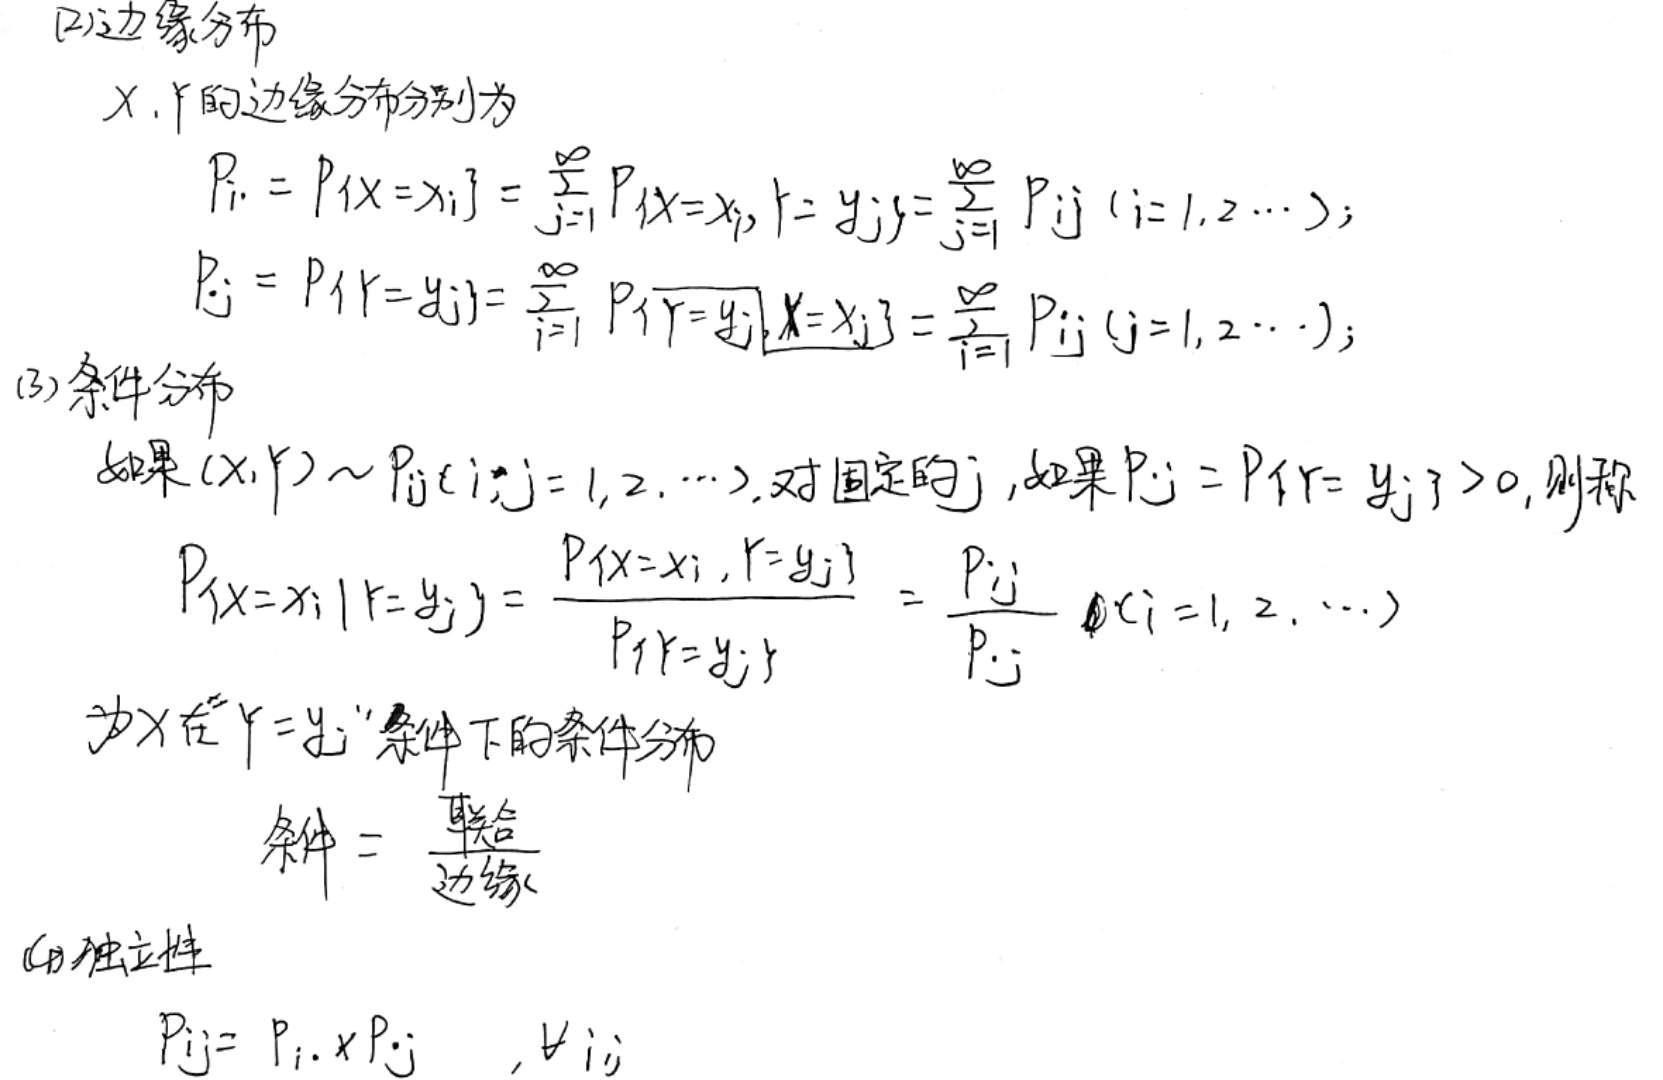 (2)边缘分布
X,Y的边缘分布分别为
Pi· = P{X=xi} = ∑_{j=1}^{∞} P{X=xi, Y=yj} = ∑_{j=1}^{∞} Pij (i=1,2…);
P·j = P{Y=yj} = ∑_{i=1}^{∞} P{Y=yj, X=xj} = ∑_{i=1}^{∞} Pij (j=1,2…);
(3)条件分布
如果(X,Y)~Pij(i,j=1,2,…),对固定的j,如果P·j = P{Y=yj}>0,则称
P{X=xi|Y=yj} = P{X=xi,Y=yj} / P{Y=yj} = Pij / P·j (i=1,2,…)
为X在"Y=yj"条件下的条件分布
条件 = 联合 / 边缘
(4)独立性
Pij = Pi· × P·j , ∀i,j